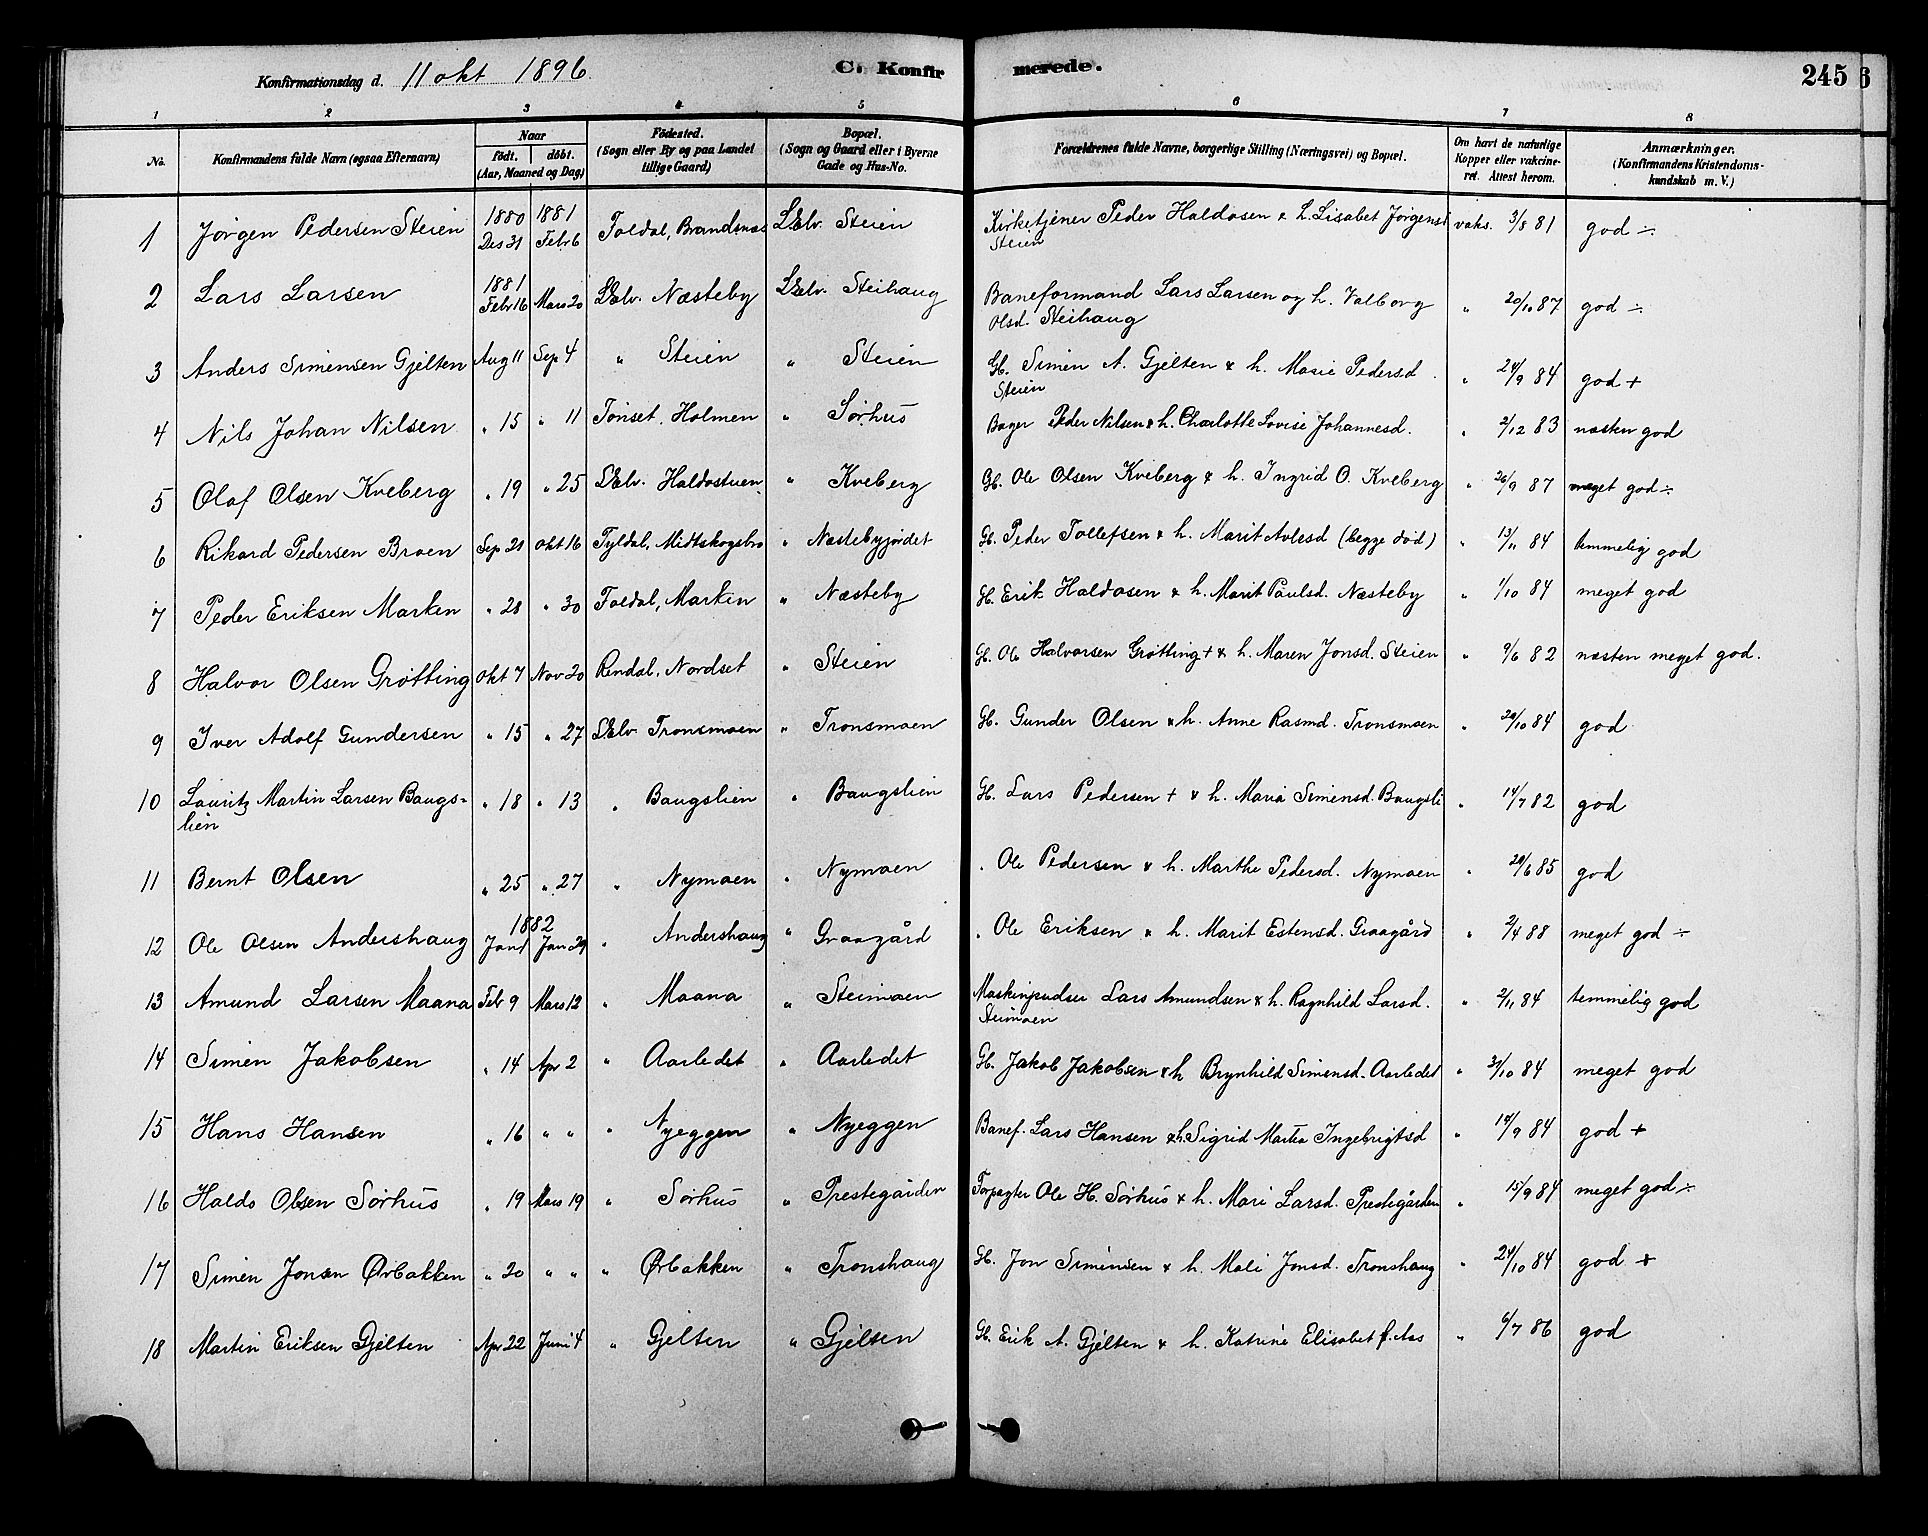 Konfirmationsdag d. 11 okt 1896. C. Konfirmerede. 245
1 2 3 4 5 6 7 8
No. Konfirmandens fulde Navn (ogsaa Efternavn) Naar födt. döbt. (Aar, Maaned og Dag) Födested. (Sogn eller By og paa Landet tillige Gaard) Bopæl. (Sogn og Gaard eller i Byerne Gade og Hus-No. Forældrenes fulde Navne, borgerlige Stilling (Næringsvei) og Bopæl. Om havt de naturlige Kopper eller vakcineret. Attest herom. Anmærkninger. (Konfirmandens Kristendomskundskab m. V.)
1 Jörgen Pedersen Steien 1880 Des 31 1881 Febr 6 Foldal, Brandsnæs L.Elv. Steien Kirketjener Peder Haldosen & h. Lisabet Jörgensd Steien vaks. 3/8 81 god ÷
2 Lars Larsen 1881 Febr 16 Mars 20 L.Elv. Næsteby L.Elv. Steihaug Baneformand Lars Larsen og h. Valborg Olsd. Steihaug " 20/10 87 god ÷
3 Anders Simensen Gjelten Aug 11 Sep 4 " Steien " Steien Gb. Simen A. Gjelten & h. Marie Pedersd. Steien " 24/9 84 god +
4 Nils Johan Nilsen " 15 " 11 Tönset, Holmen " Sörhus Bager Peder Nilsen & h. Charlotte Lovise Johannesd. " 2/12 83 næsten god
5 Olaf Olsen Kveberg " 19 " 25 L.Elv. Haldostuen " Kveberg Gb. Ole Olsen Kveberg & h. Ingrid O. Kveberg " 26/9 87 meget god ÷
6 Rikard Pedersen Broen Sep 21 Okt 16 Tyldal, Midtskogsbro " Næstebyjordet Gb. Peder Tollefsen & h. Marit (begge död) " 13/11 84 temmelig god
7 Peder Eriksen Marken " 28 " 30 Foldal, Marken " Næsteby Gb. Erik Haldosen & h. Marit Paulsd. Næsteby " 1/10 84 meget god
8 Halvor Olsen Gröttting Okt 7 Nov 20 Rendal, Nordset " Steien Gb. Ole Halvorsen Grötting + & h. Maren Jonsd. Steien " 9/6 82 næsten meget god.
9 Iver Adolf Gundersen " 15 " 27 L.Elv. Tronsmoen " Tronsmoen Gb. Gunder Olsen & h. Anne Rasmd. Tronsmoen " 20/10 84 god
10 Lauritz Martin Larsen Baugslien " 18 " 13 " Baugslien " Baugslien Gb. Lars Pedersen + & h. Maria Simensd. Baugsli " 14/7 82 god
11 Bernt Olsen " 25 " 27 " Nymoen " Nymoen " Ole Pedersen & h. Marthe Pedersd. Nymoen " 20/6 85 god
12 Ole Olsen Andershaug 1882 Jan 1 Jan 29 " Andershaug " Graagård " Ole Eriksen & h. Marit Estensd. Graagård " 2/4 88 meget god ÷
13 Amund Larsen Maana Feb 9 Mars 12 " Maana " Steimoen Maskinpudser Lars Amundsen & h. Ragnhild Larsd. Steimoen " 2/11 84 temmelig god
14 Simen Jakobsen " 14 Apr 2 " Aarledet " Aarledet Gb. Jakob Jakobsen & h Brynhild Simensd. Aarledet " 31/10 84 meget god
15 Hans Hansen " 16 " " " Nyeggen " Nyeggen Banef. Lars Hansen & h. Sigrid Martea Ingebrigtsd " 19/9 84 god +
16 Haldo Olsen Sörhus " 19 Mars 19 " Sörhus " Prestegården Forpagter Ole H. Sörhus & h. Mari Larsd. Prestegården " 15/9 84 meget god ÷
17 Simen Jonsen Örbakken " 20 " " " Örbakken " Tronshaug Gb. Jon Simensen & h. Mali Jonsd. Tronshaug " 24/10 84 god +
18 Martin Eriksen Gjelten Apr 22 Juni 4 " Gjelten " Gjelten Gb. Erik A. Gjelten & h. Katrine Elisabet f. Aas " 6/7 86 god